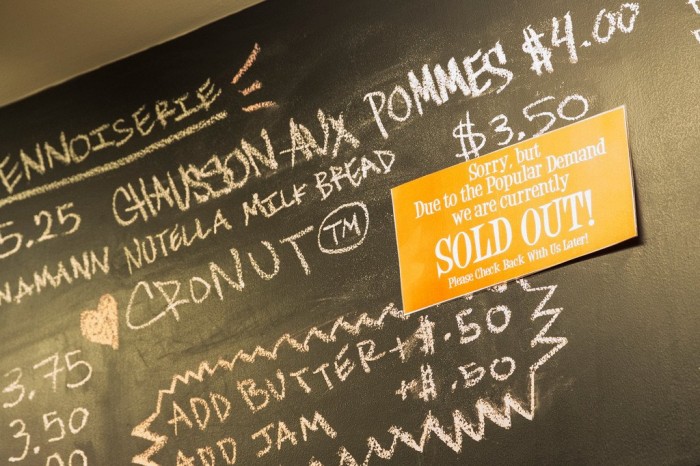 ENNOISERIE
5.25 CHAUSSON AUX POMMES $4.00
NAMANN NUTELLA MILK BREAD $3.50
CRONUT TM
Sorry, but
Due to the Popular Demand
we are currently
SOLD OUT!
Please Check Back With Us Later!
3.75
3.50
ADD BUTTER +$.50
ADD JAM +$.50